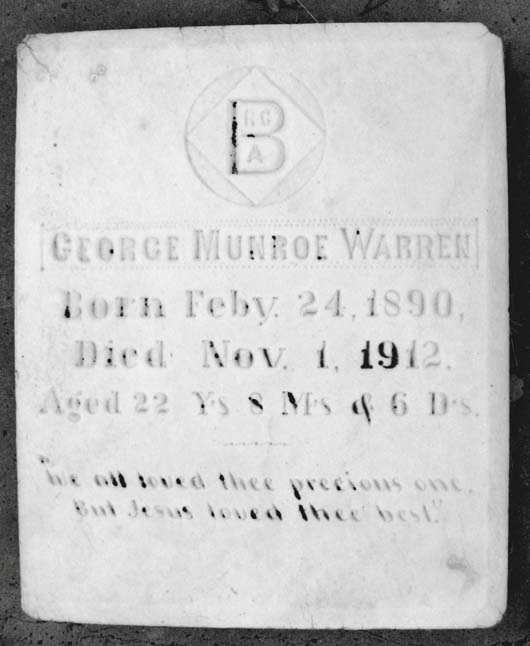 B
RC
A
GEORGE MUNROE WARREN
Born Feby. 24, 1890,
Died Nov. 1, 1912.
Aged 22 Ys 8 Ms & 6 Ds.
"We all loved thee precious one,
But Jesus loved thee best."